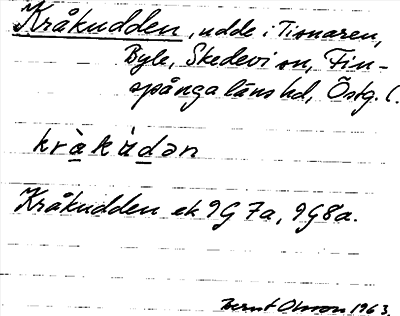 Kråkudden, udde i Tisnaren,
Byle, Skedevi sn, Fin-
spånga läns hd, Östg. l.
kràkùdən
Kråkudden ek 9G 7a, 9G8a.
Bernt Olsson 1963.